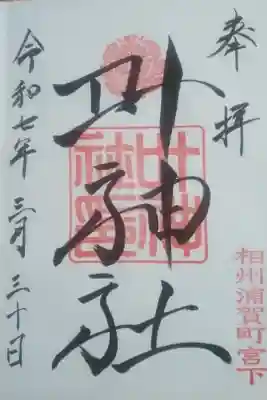 奉拝
叶神社
叶神社印
相州浦賀町宮下
令和七年三月三十日